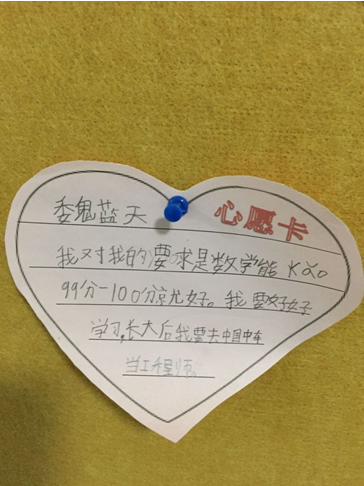 心愿卡
魏蓝天
我对我的要求是数学能kǎo
99分-100分就好。我要好好
学习,长大后我要去中国中车
当工程师。